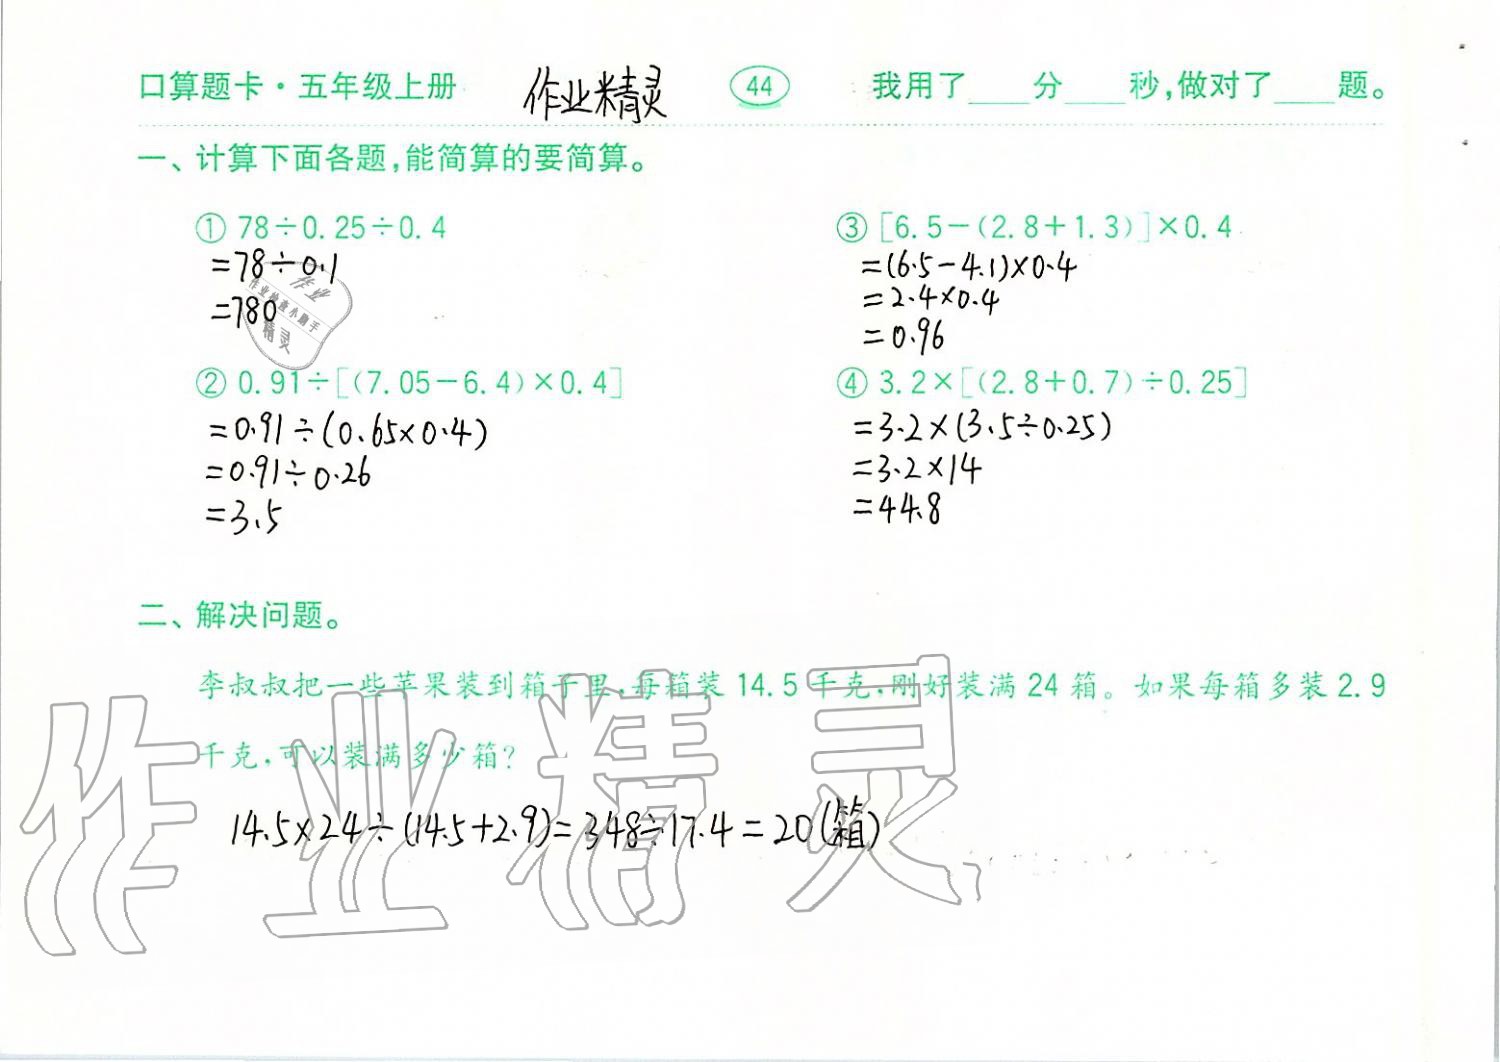 口算题卡·五年级上册 作业精灵 44 我用了____分____秒,做对了____题。
一、计算下面各题,能简算的要简算。
① 78÷0.25÷0.4
=78÷0.1
=780
作业
作业检查小助手
精灵
③ [6.5-(2.8+1.3)]×0.4
=(6.5-4.1)×0.4
=2.4×0.4
=0.96
② 0.91÷[(7.05-6.4)×0.4]
=0.91÷(0.65×0.4)
=0.91÷0.26
=3.5
④ 3.2×[(2.8+0.7)÷0.25]
=3.2×(3.5÷0.25)
=3.2×14
=44.8
二、解决问题。
李叔叔把一些苹果装到箱子里,每箱装14.5千克,刚好装满24箱。如果每箱多装2.9
千克,可以装满多少箱?
14.5×24÷(14.5+2.9)=348÷17.4=20(箱)
作业精灵